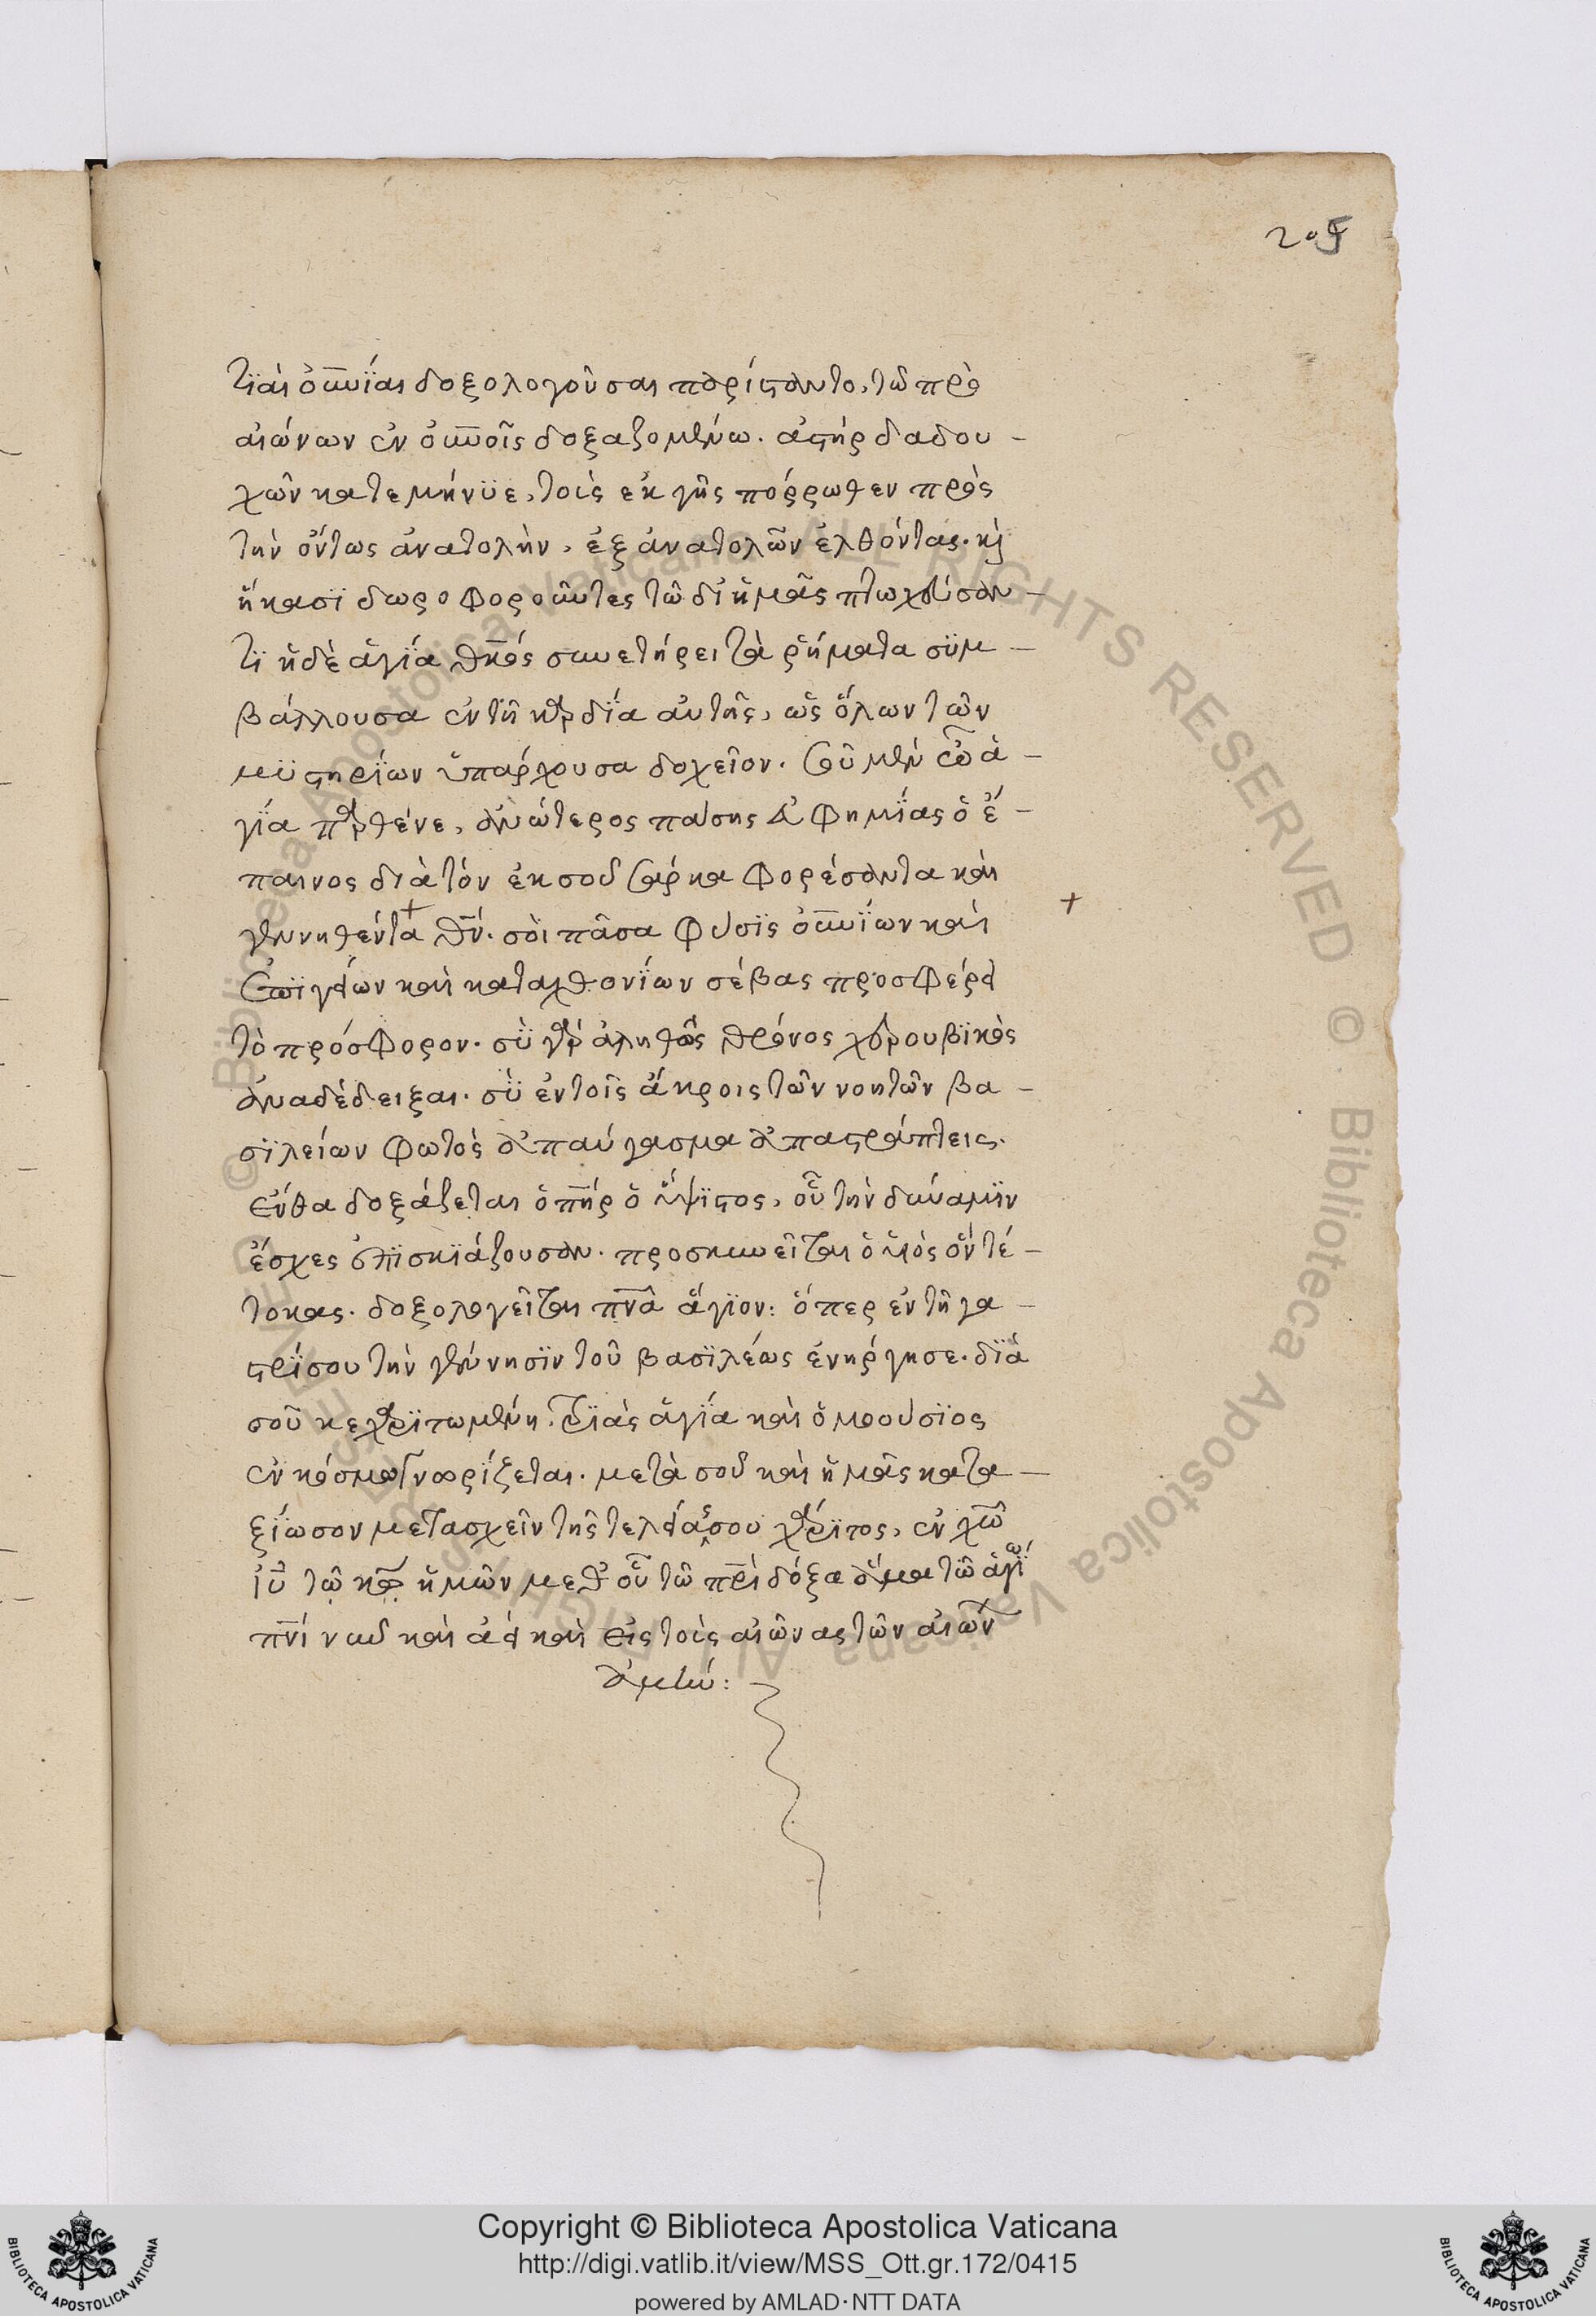 205
τϊαὶ οὐν̅ΐαι δοξολογοῦσαι παρίσταντο, τῶ πρὸ
αἰώνων ἐν οὐν̅οῖς δοξαζομένω. ἀστὴρ δαδου-
χῶν κατεμήνϋε, τοὶς ἐκ γῆς πόρρωθεν πρὸς
τὴν ὄντως ἀνατολὴν, ἐξ ἀνατολῶν ἐλθόντας. κὶ
ἥκασϊ δωροφοροῦντες τῶ δἰ ἡμᾶς πτωχεύσαν-
τϊ ἡ δὲ ἁγΐα θκ̅ος συνετήρει τὰ ῥήματα σϋμ-
βάλλουσα ἐν τῆ καρδΐα αὐτῆς, ὡς ὅλων τῶν
μϋστηρΐων ὑπάρχουσα δοχεῖον. σοῦ μὲν ὦ ἁ-
γΐα παρθένε, ἀνώτερος πάσης εὐφημΐας ὁ ἔ-
παινος διὰ τόν ἐκ σοῦ σάρκα φορέσαντα καὶ
γεννηθέντα θν̅. σοὶ πᾶσα φύσϊς οὐν̅ΐων καὶ
ἐπϊγείων καὶ καταχθονΐων σέβας προσφέρει
τὸ πρόσφορον. σῢ γὰρ ἀληθῶς θρόνος χερουβϊκὸς
ἀναδέδειξαι. σῢ ἐν τοῖς ἄκροις τῶν νοητῶν βα-
σϊλείων φωτὸς ἀπαύγασμα ἀπαστράπτεις.
ἔνθα δοξάζεται ὁ πη̅ρ ὁ ὕψϊστος, οὗ τὴν δύναμϊν
ἔσχες ἐπϊσκϊάζουσαν. προσκυνεῖται ὁ υἱὸς ὃν τέ-
τοκας. δοξολογεῖται πν̅α ἅγϊον: ὅπερ ἐν τῆ γα-
στρΐ σου τὴν γέννησϊν τοῦ βασϊλέως ἐνήργησε. δϊὰ
σοῦ κεχαρϊτωμένη, τρϊὰς ἁγΐα καὶ ὁμοούσϊος
ἐν κόσμω γνωρίζεται. μετὰ σοῦ καὶ ἡμᾶς κατα-
ξΐωσον μετασχεῖν τῆς τελείας σου χάρϊτος, ἐν χω̅
ἰυ̅ τῶ κω̅ ἡμῶν μεθ' οὗ τῶ πρ̅ὶ δόξα ἅμα τῶ ἁγΐω
πν̅ί νυν καὶ ἀεὶ καὶ εἰς τοὺς αἰῶνας τῶν αἰών
ἀμήν:
Copyright © Biblioteca Apostolica Vaticana
http://digi.vatlib.it/view/MSS_Ott.gr.172/0415
powered by AMLAD·NTT DATA